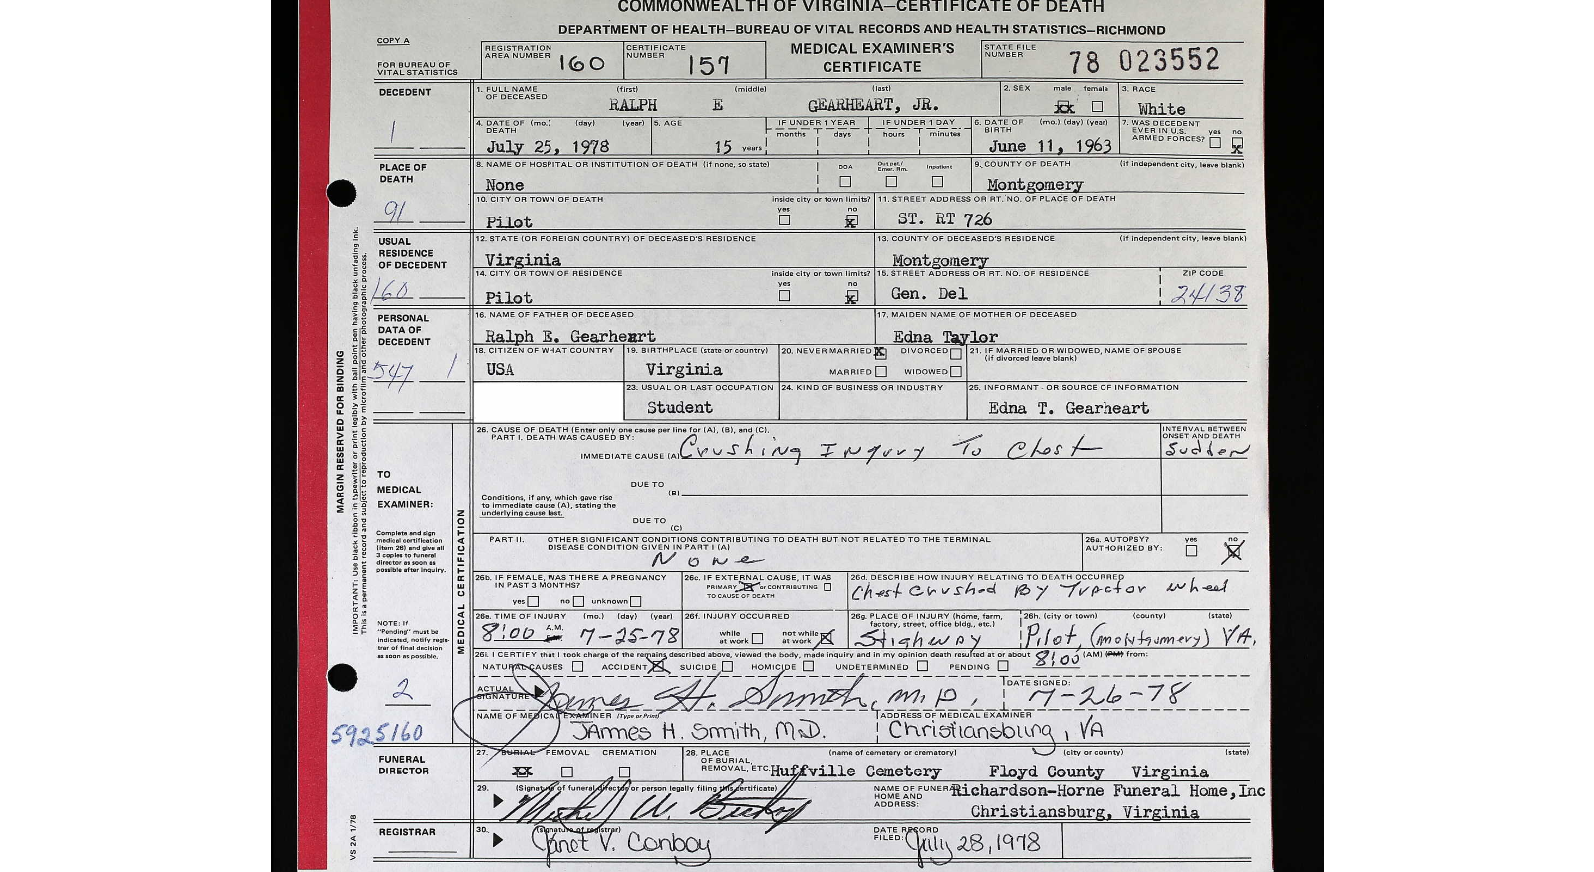 COMMONWEALTH OF VIRGINIA—CERTIFICATE OF DEATH
DEPARTMENT OF HEALTH—BUREAU OF VITAL RECORDS AND HEALTH STATISTICS—RICHMOND
COPY A
FOR BUREAU OF VITAL STATISTICS
REGISTRATION AREA NUMBER 160
CERTIFICATE NUMBER 157
MEDICAL EXAMINER'S CERTIFICATE
STATE FILE NUMBER 78 023552
DECEDENT
1
1. FULL NAME OF DECEASED (first) (middle) (last)
RALPH E GEARHEART, JR.
2. SEX male female
XX
3. RACE
White
4. DATE OF DEATH (mo.) (day) (year)
July 25, 1978
5. AGE
15 years
IF UNDER 1 YEAR months days
IF UNDER 1 DAY hours minutes
6. DATE OF BIRTH (mo.) (day) (year)
June 11, 1963
7. WAS DECEDENT EVER IN U.S. ARMED FORCES? yes no
X
PLACE OF DEATH
91
8. NAME OF HOSPITAL OR INSTITUTION OF DEATH (if none, so state)
None
DOA Out pat./ Emer. Rm. Inpatient
9. COUNTY OF DEATH (if independent city, leave blank)
Montgomery
10. CITY OR TOWN OF DEATH
Pilot
inside city or town limits? yes no
X
11. STREET ADDRESS OR RT. NO. OF PLACE OF DEATH
ST. RT 726
USUAL RESIDENCE OF DECEDENT
160
12. STATE (OR FOREIGN COUNTRY) OF DECEASED'S RESIDENCE
Virginia
13. COUNTY OF DECEASED'S RESIDENCE (if independent city, leave blank)
Montgomery
14. CITY OR TOWN OF RESIDENCE
Pilot
inside city or town limits? yes no
X
15. STREET ADDRESS OR RT. NO. OF RESIDENCE
Gen. Del
ZIP CODE
24138
PERSONAL DATA OF DECEDENT
547 1
16. NAME OF FATHER OF DECEASED
Ralph E. Gearheart
17. MAIDEN NAME OF MOTHER OF DECEASED
Edna Taylor
18. CITIZEN OF WHAT COUNTRY
USA
19. BIRTHPLACE (state or country)
Virginia
20. NEVER MARRIED X DIVORCED
MARRIED WIDOWED
21. IF MARRIED OR WIDOWED, NAME OF SPOUSE (if divorced leave blank)
23. USUAL OR LAST OCCUPATION
Student
24. KIND OF BUSINESS OR INDUSTRY
25. INFORMANT - OR SOURCE OF INFORMATION
Edna T. Gearheart
MARGIN RESERVED FOR BINDING
IMPORTANT: Use black ribbon in typewriter or print legibly with ball point pen having black unfading ink.
This is a permanent record and subject to reproduction by microfilm and other photographic process.
MEDICAL CERTIFICATION
TO MEDICAL EXAMINER:
Complete and sign medical certification (item 26) and give all 3 copies to funeral director as soon as possible after inquiry.
NOTE: If "Pending" must be indicated, notify registrar of final decision as soon as possible.
2
5925160
26. CAUSE OF DEATH (Enter only one cause per line for (A), (B), and (C).
PART I. DEATH WAS CAUSED BY:
IMMEDIATE CAUSE (A) Crushing Injury To Chest
INTERVAL BETWEEN ONSET AND DEATH
Sudden
DUE TO (B)
Conditions, if any, which gave rise to immediate cause (A), stating the underlying cause last.
DUE TO (C)
PART II. OTHER SIGNIFICANT CONDITIONS CONTRIBUTING TO DEATH BUT NOT RELATED TO THE TERMINAL DISEASE CONDITION GIVEN IN PART I (A)
None
26a. AUTOPSY? AUTHORIZED BY: yes no
X
26b. IF FEMALE, WAS THERE A PREGNANCY IN PAST 3 MONTHS?
yes no unknown
26c. IF EXTERNAL CAUSE, IT WAS
PRIMARY X or CONTRIBUTING
TO CAUSE OF DEATH
26d. DESCRIBE HOW INJURY RELATING TO DEATH OCCURRED
Chest Crushed By Tractor wheel
26e. TIME OF INJURY (mo.) (day) (year)
8:00 A.M. 7-25-78
26f. INJURY OCCURRED
while at work not while at work X
26g. PLACE OF INJURY (home, farm, factory, street, office bldg., etc.)
26h. (city or town) (county) (state)
Pilot, (Montgomery) VA.
26i. I CERTIFY that I took charge of the remains described above, viewed the body, made inquiry and in my opinion death resulted at or about 8:00 (AM) (PM) from:
NATURAL CAUSES ACCIDENT X SUICIDE HOMICIDE UNDETERMINED PENDING
ACTUAL SIGNATURE James H. Smith, M.D.
DATE SIGNED: 7-26-78
NAME OF MEDICAL EXAMINER (Type or Print)
James H. Smith, M.D.
ADDRESS OF MEDICAL EXAMINER
Christiansburg, VA
FUNERAL DIRECTOR
27. BURIAL REMOVAL CREMATION
XX
28. PLACE OF BURIAL, REMOVAL, ETC. (name of cemetery or crematory) (city or county) (state)
Huffville Cemetery Floyd County Virginia
29. (Signature of funeral director or person legally filing this certificate)
NAME OF FUNERAL HOME AND ADDRESS:
Richardson-Horne Funeral Home,Inc
Christiansburg, Virginia
REGISTRAR
30. (signature of registrar)
Janet V. Conboy
DATE RECORD FILED: July 28, 1978
VS 2A 1/78